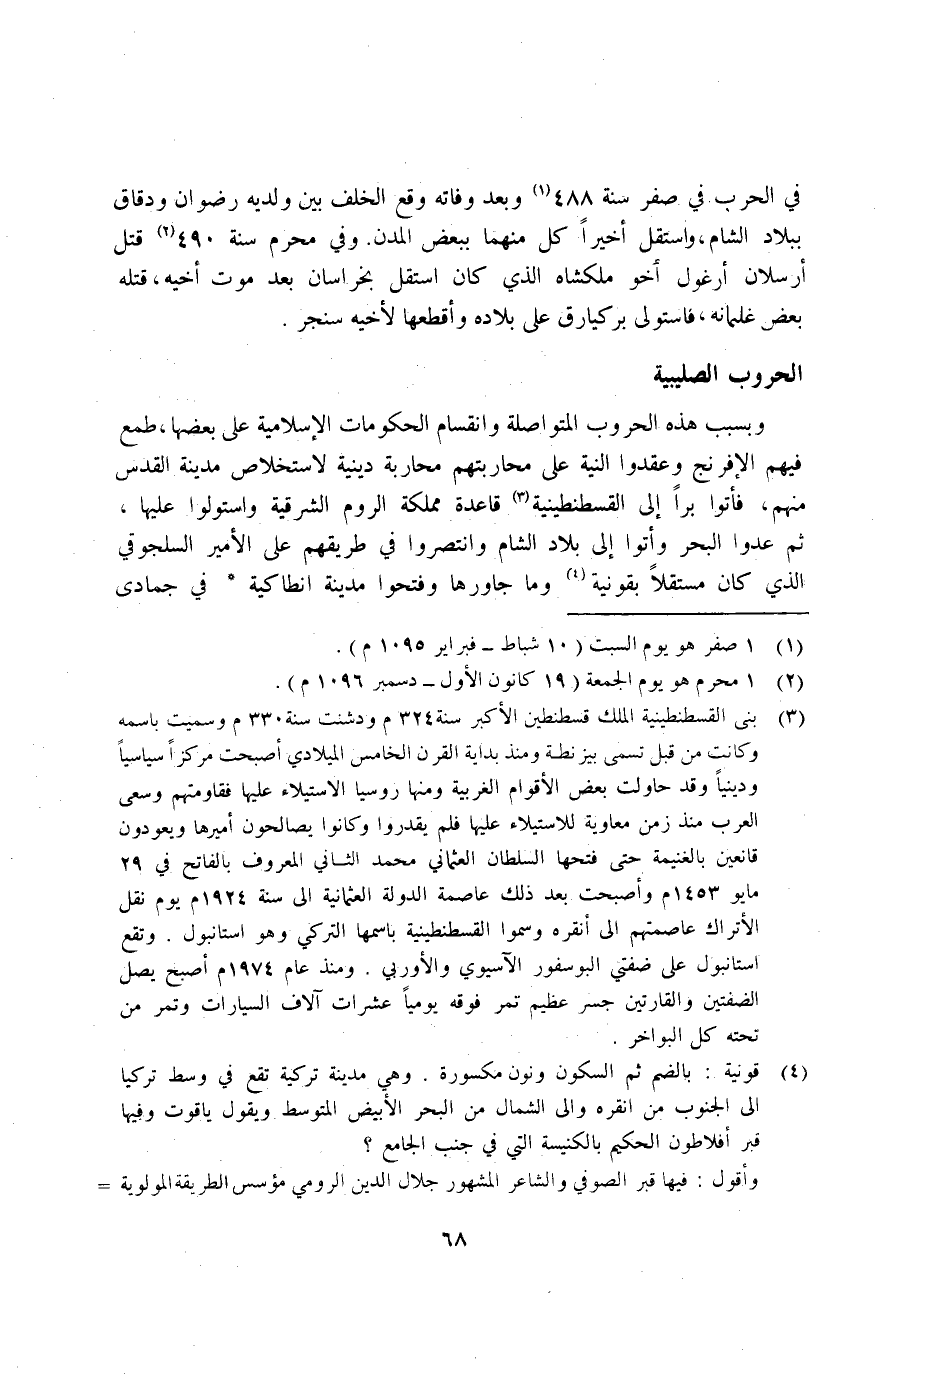 في الحرب في صفر سنة ٤٨٨(١) وبعد وفاته وقع الخلف بين ولديه رضوان ودقاق
ببلاد الشام، واستقل أخيراً كل منهما ببعض المدن. وفي محرم سنة ٤٩٠(٢) قتل
أرسلان أرغول أخو ملكشاه الذي كان استقل بخراسان بعد موت أخيه، قتله
بعض غلمانه، فاستولى بركيارق على بلاده وأقطعها لأخيه سنجر .
الحروب الصليبية
وبسبب هذه الحروب المتواصلة وانقسام الحكومات الإسلامية على بعضها، طمع
فيهم الإفرنج وعقدوا النية على محاربتهم محاربة دينية لاستخلاص مدينة القدس
منهم، فأتوا براً إلى القسطنطينية(٣) قاعدة مملكة الروم الشرقية واستولوا عليها ،
ثم عدوا البحر وأتوا إلى بلاد الشام وانتصروا في طريقهم على الأمير السلجوقي
الذي كان مستقلاً بقونية(٤) وما جاورها وفتحوا مدينة انطاكية * في جمادى
(١) ١ صفر هو يوم السبت ( ١٠ شباط ـ فبراير ١٠٩٥ م ) .
(٢) ١ محرم هو يوم الجمعة ( ١٩ كانون الأول ـ دسمبر ١٠٩٦ م ) .
(٣) بنى القسطنطينية الملك قسطنطين الأكبر سنة ٣٢٤ م ودشنت سنة ٣٣٠ م وسميت باسمه
وكانت من قبل تسمى بيزنطة ومنذ بداية القرن الخامس الميلادي أصبحت مركزاً سياسياً
ودينياً وقد حاولت بعض الأقوام الغربية ومنها روسيا الاستيلاء عليها فقاومتهم وسعى
العرب منذ زمن معاوية للاستيلاء عليها فلم يقدروا وكانوا يصالحون أميرها ويعودون
قانعين بالغنيمة حتى فتحها السلطان العثماني محمد الثاني المعروف بالفاتح في ٢٩
مايو ١٤٥٣م وأصبحت بعد ذلك عاصمة الدولة العثمانية الى سنة ١٩٢٤م يوم نقل
الأتراك عاصمتهم الى أنقره وسموا القسطنطينية باسمها التركي وهو استانبول . وتقع
استانبول على ضفتي البوسفور الآسيوي والأوربي . ومنذ عام ١٩٧٤م أصبح يصل
الضفتين والقارتين جسر عظيم تمر فوقه يومياً عشرات آلاف السيارات وتمر من
تحته كل البواخر .
(٤) قونية : بالضم ثم السكون ونون مكسورة . وهي مدينة تركية تقع في وسط تركيا
الى الجنوب من انقره والى الشمال من البحر الأبيض المتوسط ويقول ياقوت وفيها
قبر أفلاطون الحكيم بالكنيسة التي في جنب الجامع ؟
وأقول : فيها قبر الصوفي والشاعر المشهور جلال الدين الرومي مؤسس الطريقة المولوية =
٦٨